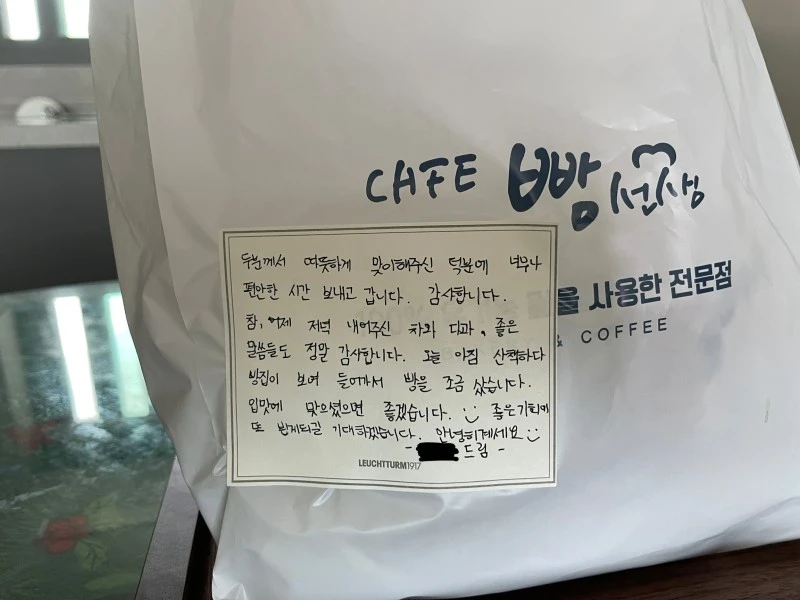 CAFE 빵선생
을 사용한 전문점
& COFFEE
두분께서 따뜻하게 맞이해주신 덕분에 너무나
편안한 시간 보내고 갑니다. 감사합니다.
참, 어제 저녁 내어주신 차와 다과, 좋은
말씀들도 정말 감사합니다. 오늘 아침 산책하다
빵집이 보여 들어가서 빵을 조금 샀습니다.
입맛에 맞으셨으면 좋겠습니다. 좋은기회에
또 뵙게되길 기대하겠습니다. 안녕히계세요
- 드림 -
LEUCHTTURM1917